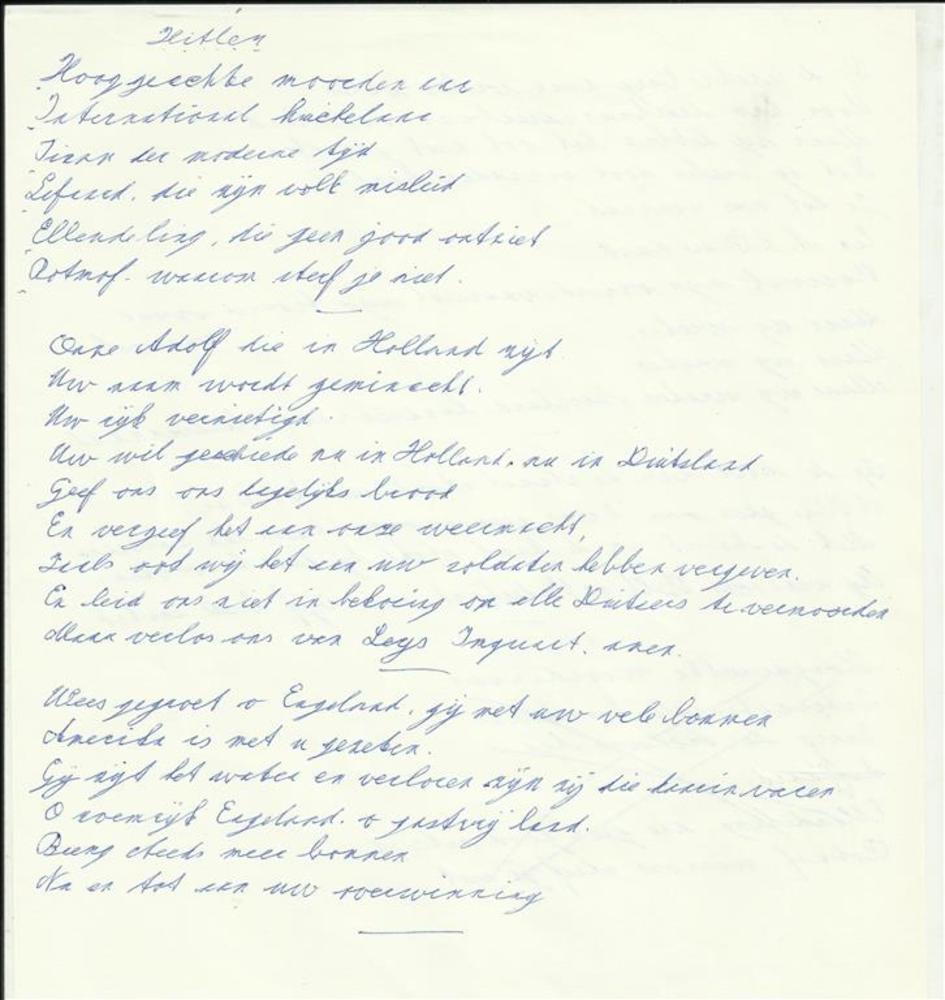 Hitler
Hooggeachte moordenaar
Internationaal kwekelaar
Tiran der moderne tijd
Lafaard, die zijn volk misleid
Ellendeling, die geen goed ontziet
Rotmof. waarom sterf je niet.
Onze Adolf die in Holland zijt
Uw naam wordt geminacht.
Uw rijk vernietigd.
Uw wil geschiede na in Holland. na in Duitsland
Geef ons ons dagelijks brood
En vergeef het aan onze weermacht,
Zoals ook wij het aan uw soldaten hebben vergeven.
En leid ons niet in bekoring om alle Duitsers te vermoorden
Maar verlos ons van Seys Inquart. amen.
Wees gegroet o Engeland. gij met uw vele bommen
Amerika is met u gezeten.
Gij zijt het water en verloren zijn zij die daarin varen
O roemrijk Engeland. o gastvrij land.
Breng steeds meer bommen
Nu en tot aan uw overwinning